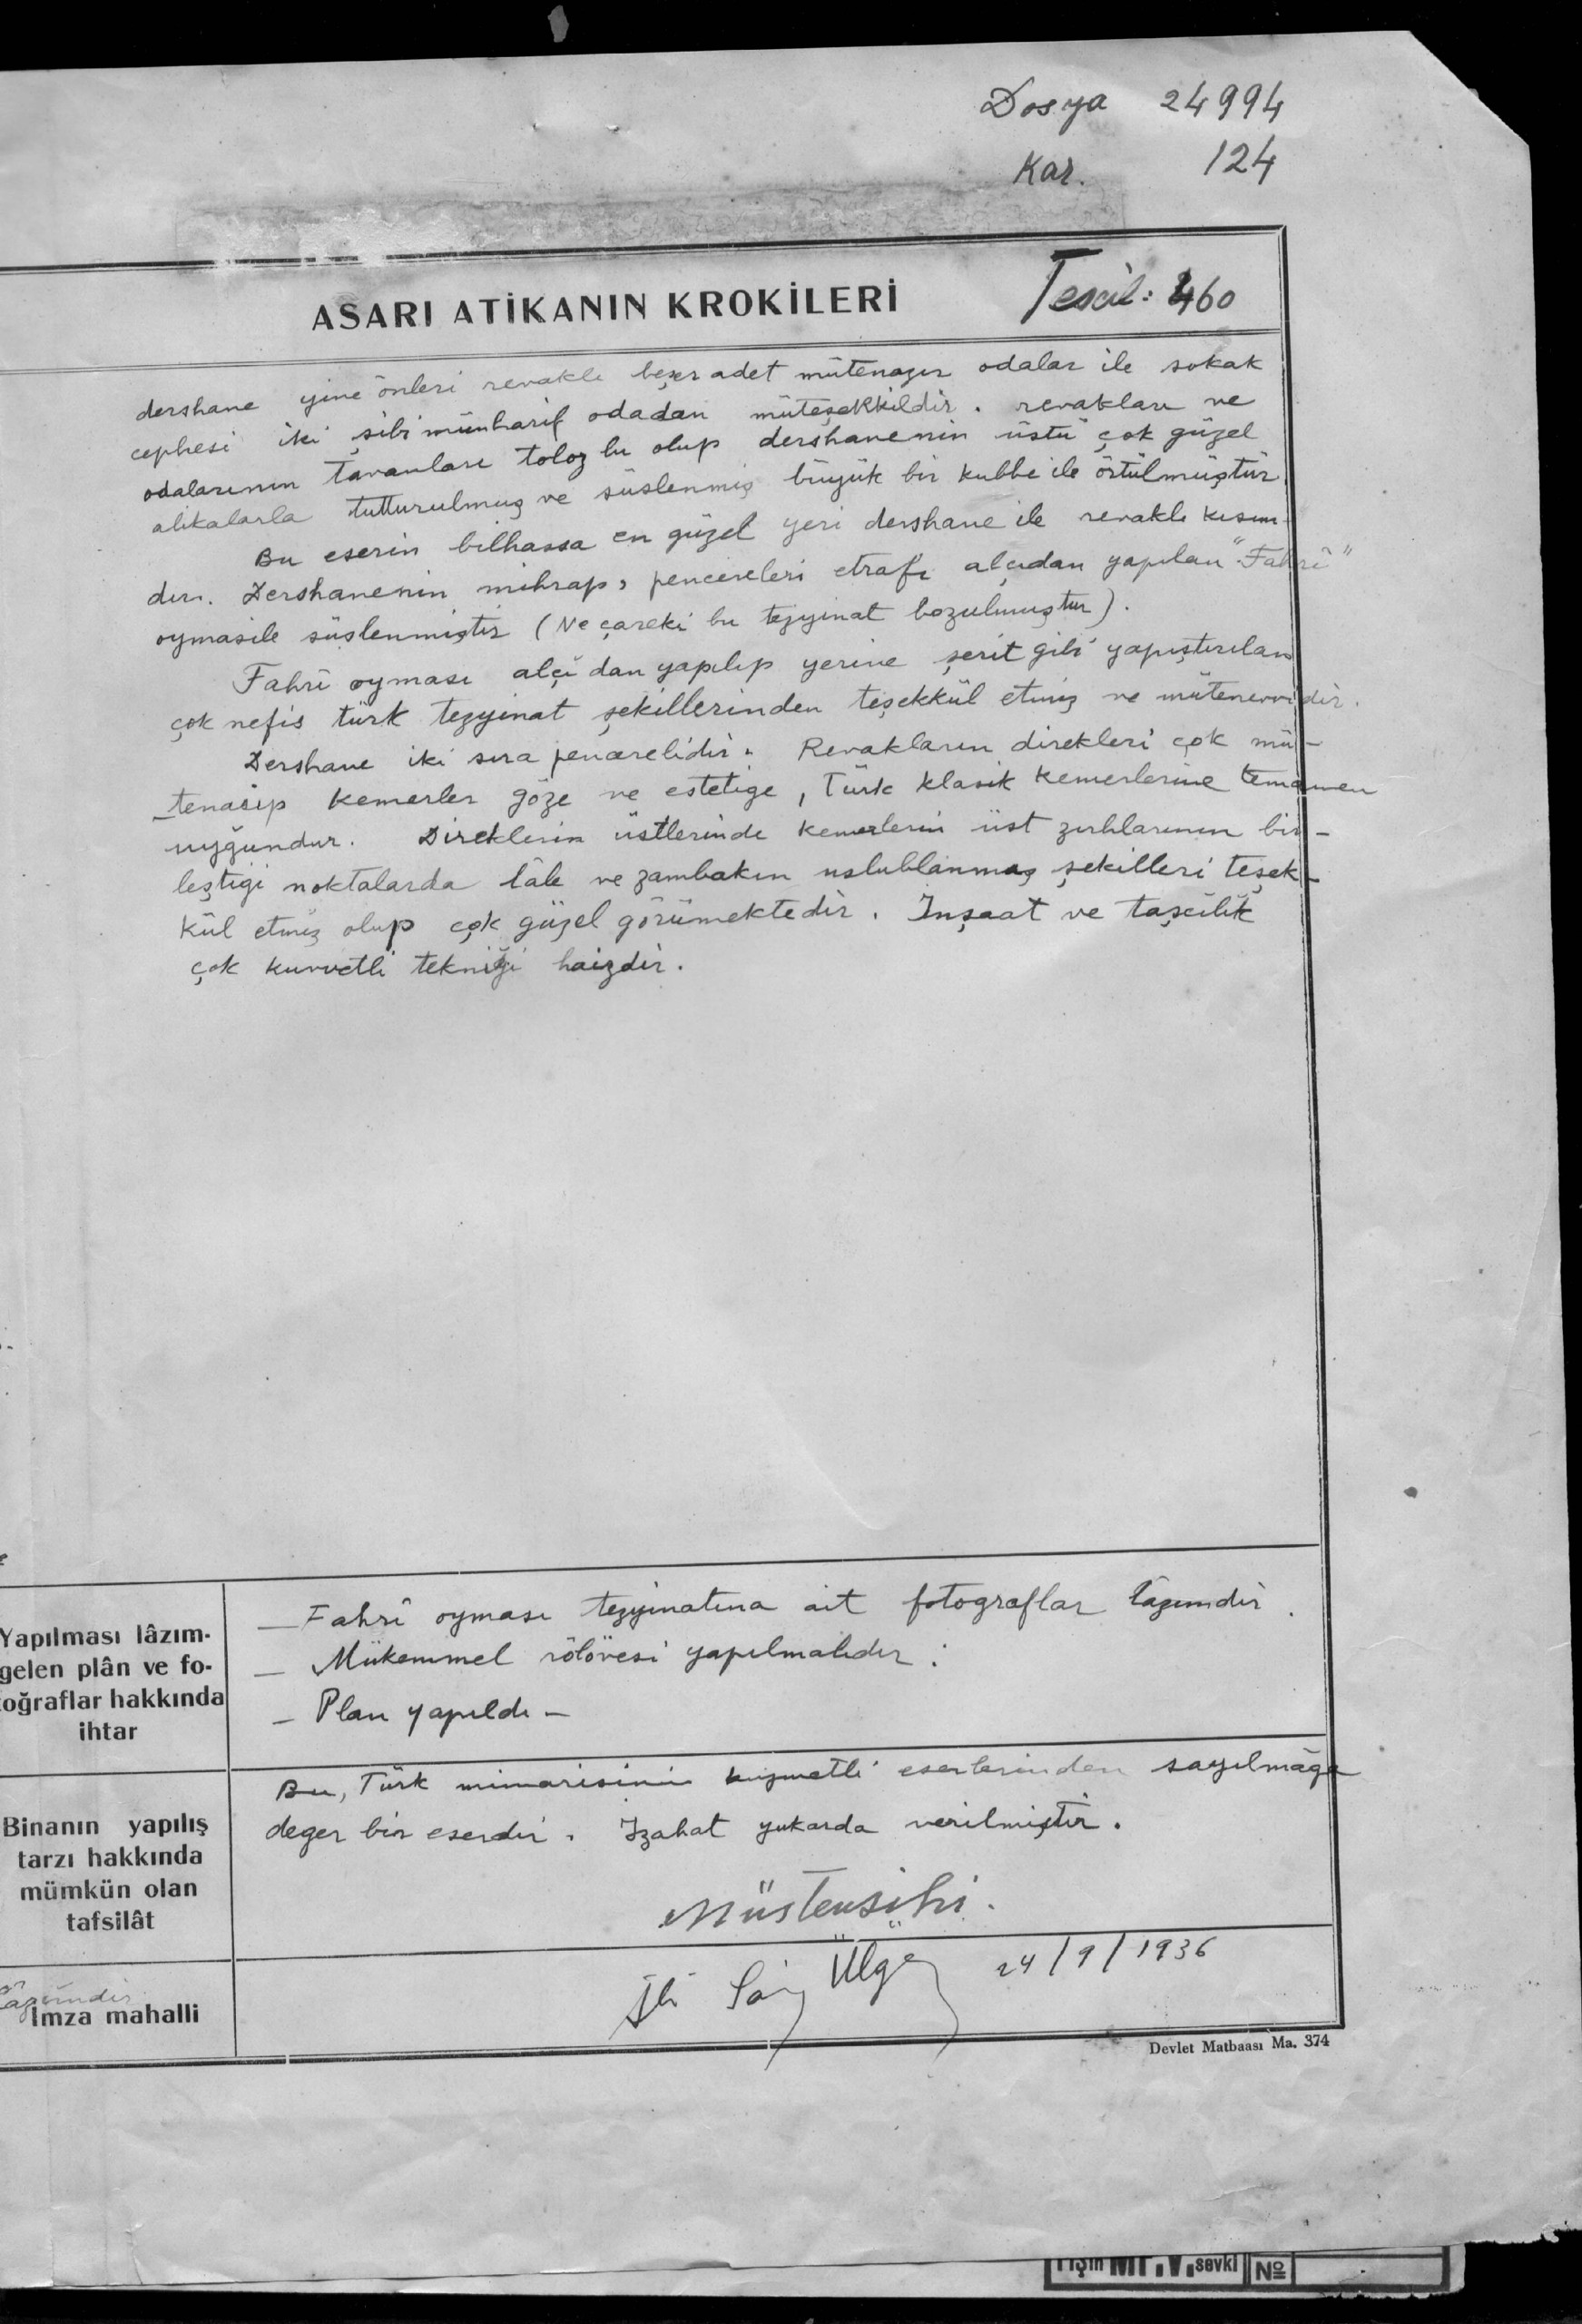 Dosya 24994
Kar. 124
ASARI ATİKANIN KROKİLERİ
Tescil: 460
dershane yine önleri revaklı beşer adet mütenazır odalar ile sokak
cephesi iki şibi münharif odadan müteşekkildir. revakları ve
odalarının tavanları tolozlu olup dershanenin üstü çok güzel
alikalarla tutturulmuş ve süslenmiş büyük bir kubbe ile örtülmüştür
Bu eserin bilhassa en güzel yeri dershane ile revaklı kısım-
dır. Dershanenin mihrap, pencereleri etrafı alçıdan yapılan "Fahrî"
oymasile süslenmiştir (Ne çareki bu tezyinat bozulmuştur).
Fahrî oyması alçıdan yapılıp yerine şerit gibi yapıştırılan
çok nefis türk tezyinat şekillerinden teşekkül etmiş ve mütenevvidir.
Dershane iki sıra pencerelidir. Revakların direkleri çok mü-
tenasip kemerler göze ve estetige, Türk klasik kemerlerine temamen
uyğundur. Direklerin üstlerinde kemerlerin üst zırhlarının bir-
leştigi noktalarda lâle ve zambakın uslublanmış şekilleri teşek-
kül etmiş olup çok güzel görümektedir. İnşaat ve taşcılık
çok kuvvetli tekniği haizdir.
Yapılması lâzım-
gelen plân ve fo-
toğraflar hakkında
ihtar
— Fahrî oyması tezyinatına ait fotograflar lâzımdır.
— Mükemmel rölövesi yapılmalıdır.
— Plan yapıldı —
Binanın yapılış
tarzı hakkında
mümkün olan
tafsilât
Bu, Türk mimarisinin kıymetli eserlerinden sayılmağa
deger bir eserdir. İzahat yukarda verilmiştir.
Müstensihi.
lâzımdır
İmza mahalli
Ülgen 24/9/1936
Devlet Matbaası Ma. 374
sevki No